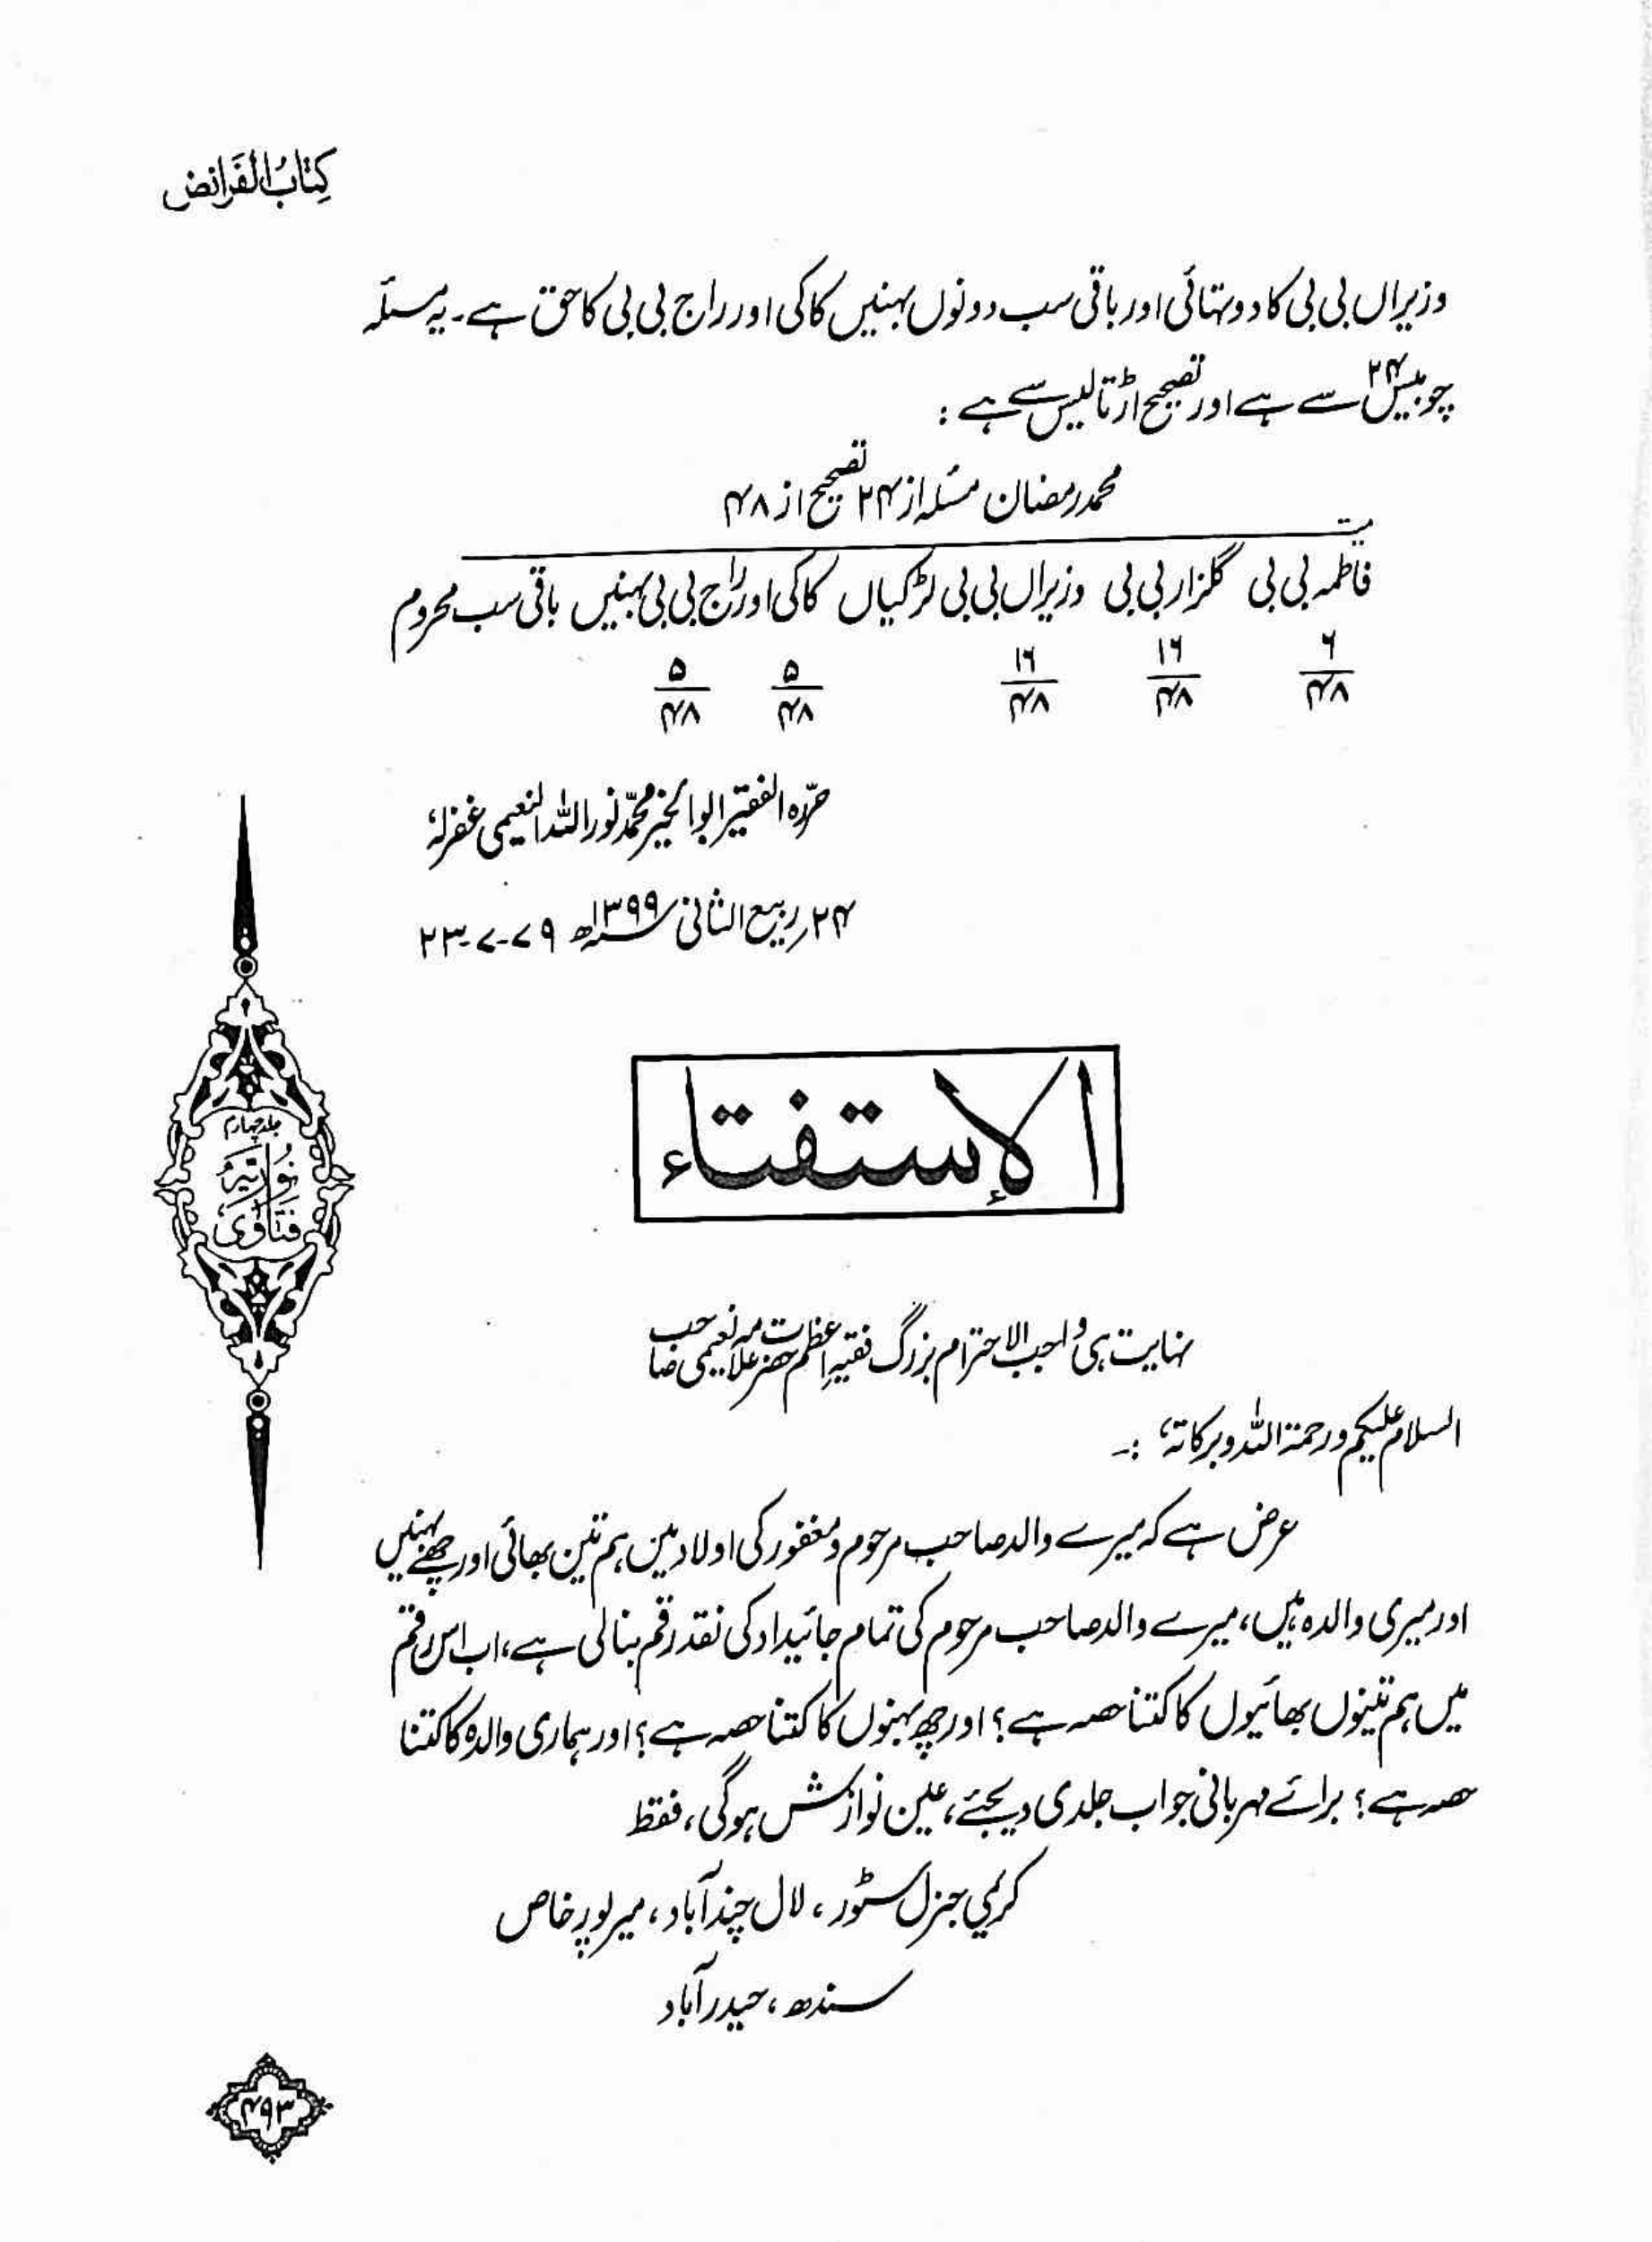 کِتَابُ الْفَرَائِض
وزیراں بی بی کا دو تہائی اور باقی سب دونوں بہنیں کاکی اور راج بی بی کا حق ہے۔ یہ مسئلہ
چوبیس۲۴ سے ہے اور تصحیح اڑتالیس سے ہے :
محمد رمضان مسئلہ از ۲۴ تصحیح از ۴۸
میت
فاطمہ بی بی گلزار بی بی وزیراں بی بی لڑکیاں کاکی اور راج بی بی بہنیں باقی سب محروم
۶/۴۸ ۱۶/۴۸ ۱۶/۴۸ ۵/۴۸ ۵/۴۸
حرّرہ الفقیر ابو الخیر محمّد نور اللہ النعیمی غفرلہٗ
۲۴؍ ربیع الثانی ۱۳۹۹ھ ۷۹-۷-۲۳
جلد چہارم
نُوریَّہ
فَتَاوٰی
الإستفتاء
نہایت ہی واجب الاحترام بزرگ فقیہِ اعظم حضرت علامہ نعیمی صاحب
السلام علیکم ورحمۃ اللہ وبرکاتہٗ :۔
عرض ہے کہ میرے والد صاحب مرحوم و مغفور کی اولاد میں ہم تین بھائی اور چھ بہنیں
اور میری والدہ ہیں، میرے والد صاحب مرحوم کی تمام جائیداد کی نقد رقم بنا لی ہے، اب اس رقم
میں ہم تینوں بھائیوں کا کتنا حصہ ہے؟ اور چھ بہنوں کا کتنا حصہ ہے؟ اور ہماری والدہ کا کتنا
حصہ ہے؟ برائے مہربانی جواب جلدی دیجئے، عین نوازش ہوگی، فقط
کریمی جنرل سٹور، لال چند آباد، میرپور خاص
سندھ، حیدر آباد
۴۹۳